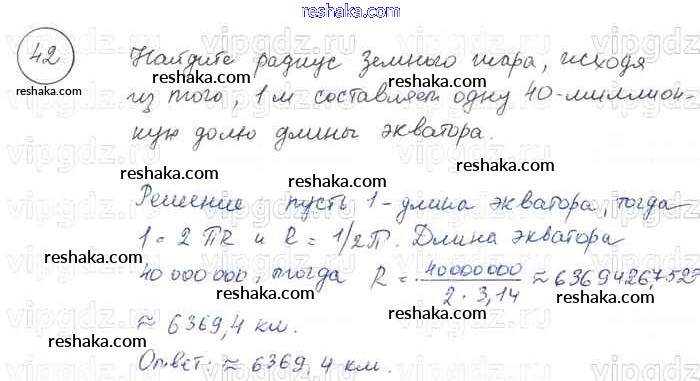 reshaka.com
42
Найдите радиус Земного шара, исходя
reshaka.com reshaka.com reshaka.com
из того, 1 м составляет одну 40-миллион-
ную долю длины экватора.
reshaka.com reshaka.com
reshaka.com
Решение: пусть 1 - длина экватора, тогда
reshaka.com reshaka.com
1 = 2 πR и R = 1/2π. Длина экватора
reshaka.com
40 000 000, тогда R = 40000000 / 2 · 3,14 ≈ 6369426,752
reshaka.com reshaka.com
≈ 6369,4 км.
reshaka.com
Ответ: ≈ 6369,4 км.
reshaka.com reshaka.com